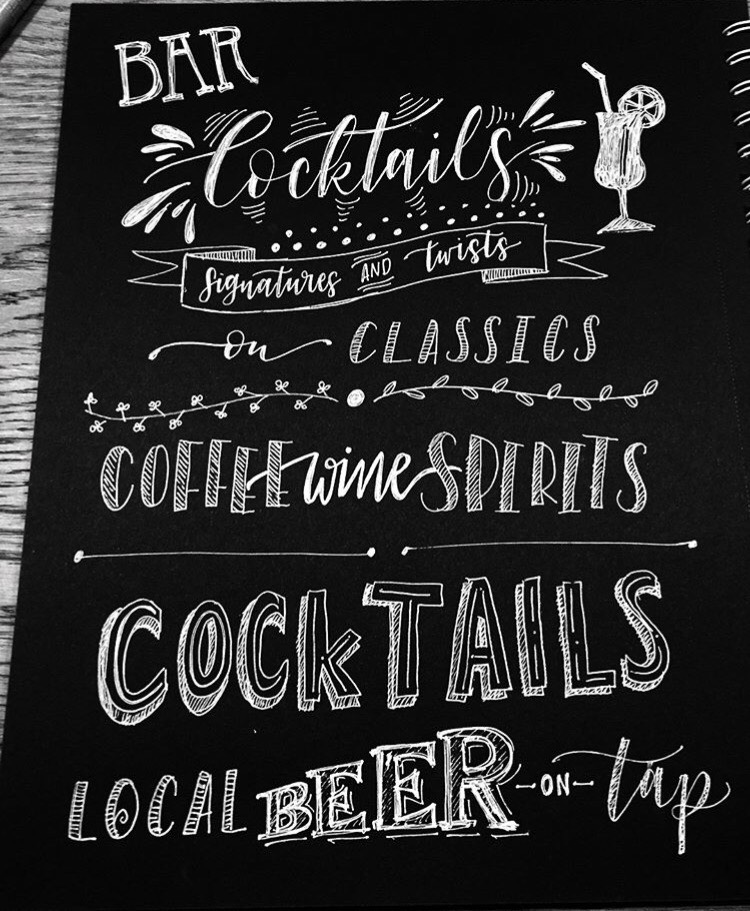 BAR
Cocktails
Signatures AND twists
on CLASSICS
COFFEE wine SPIRITS
COCkTAILS
LOCAL BEER -ON- tap